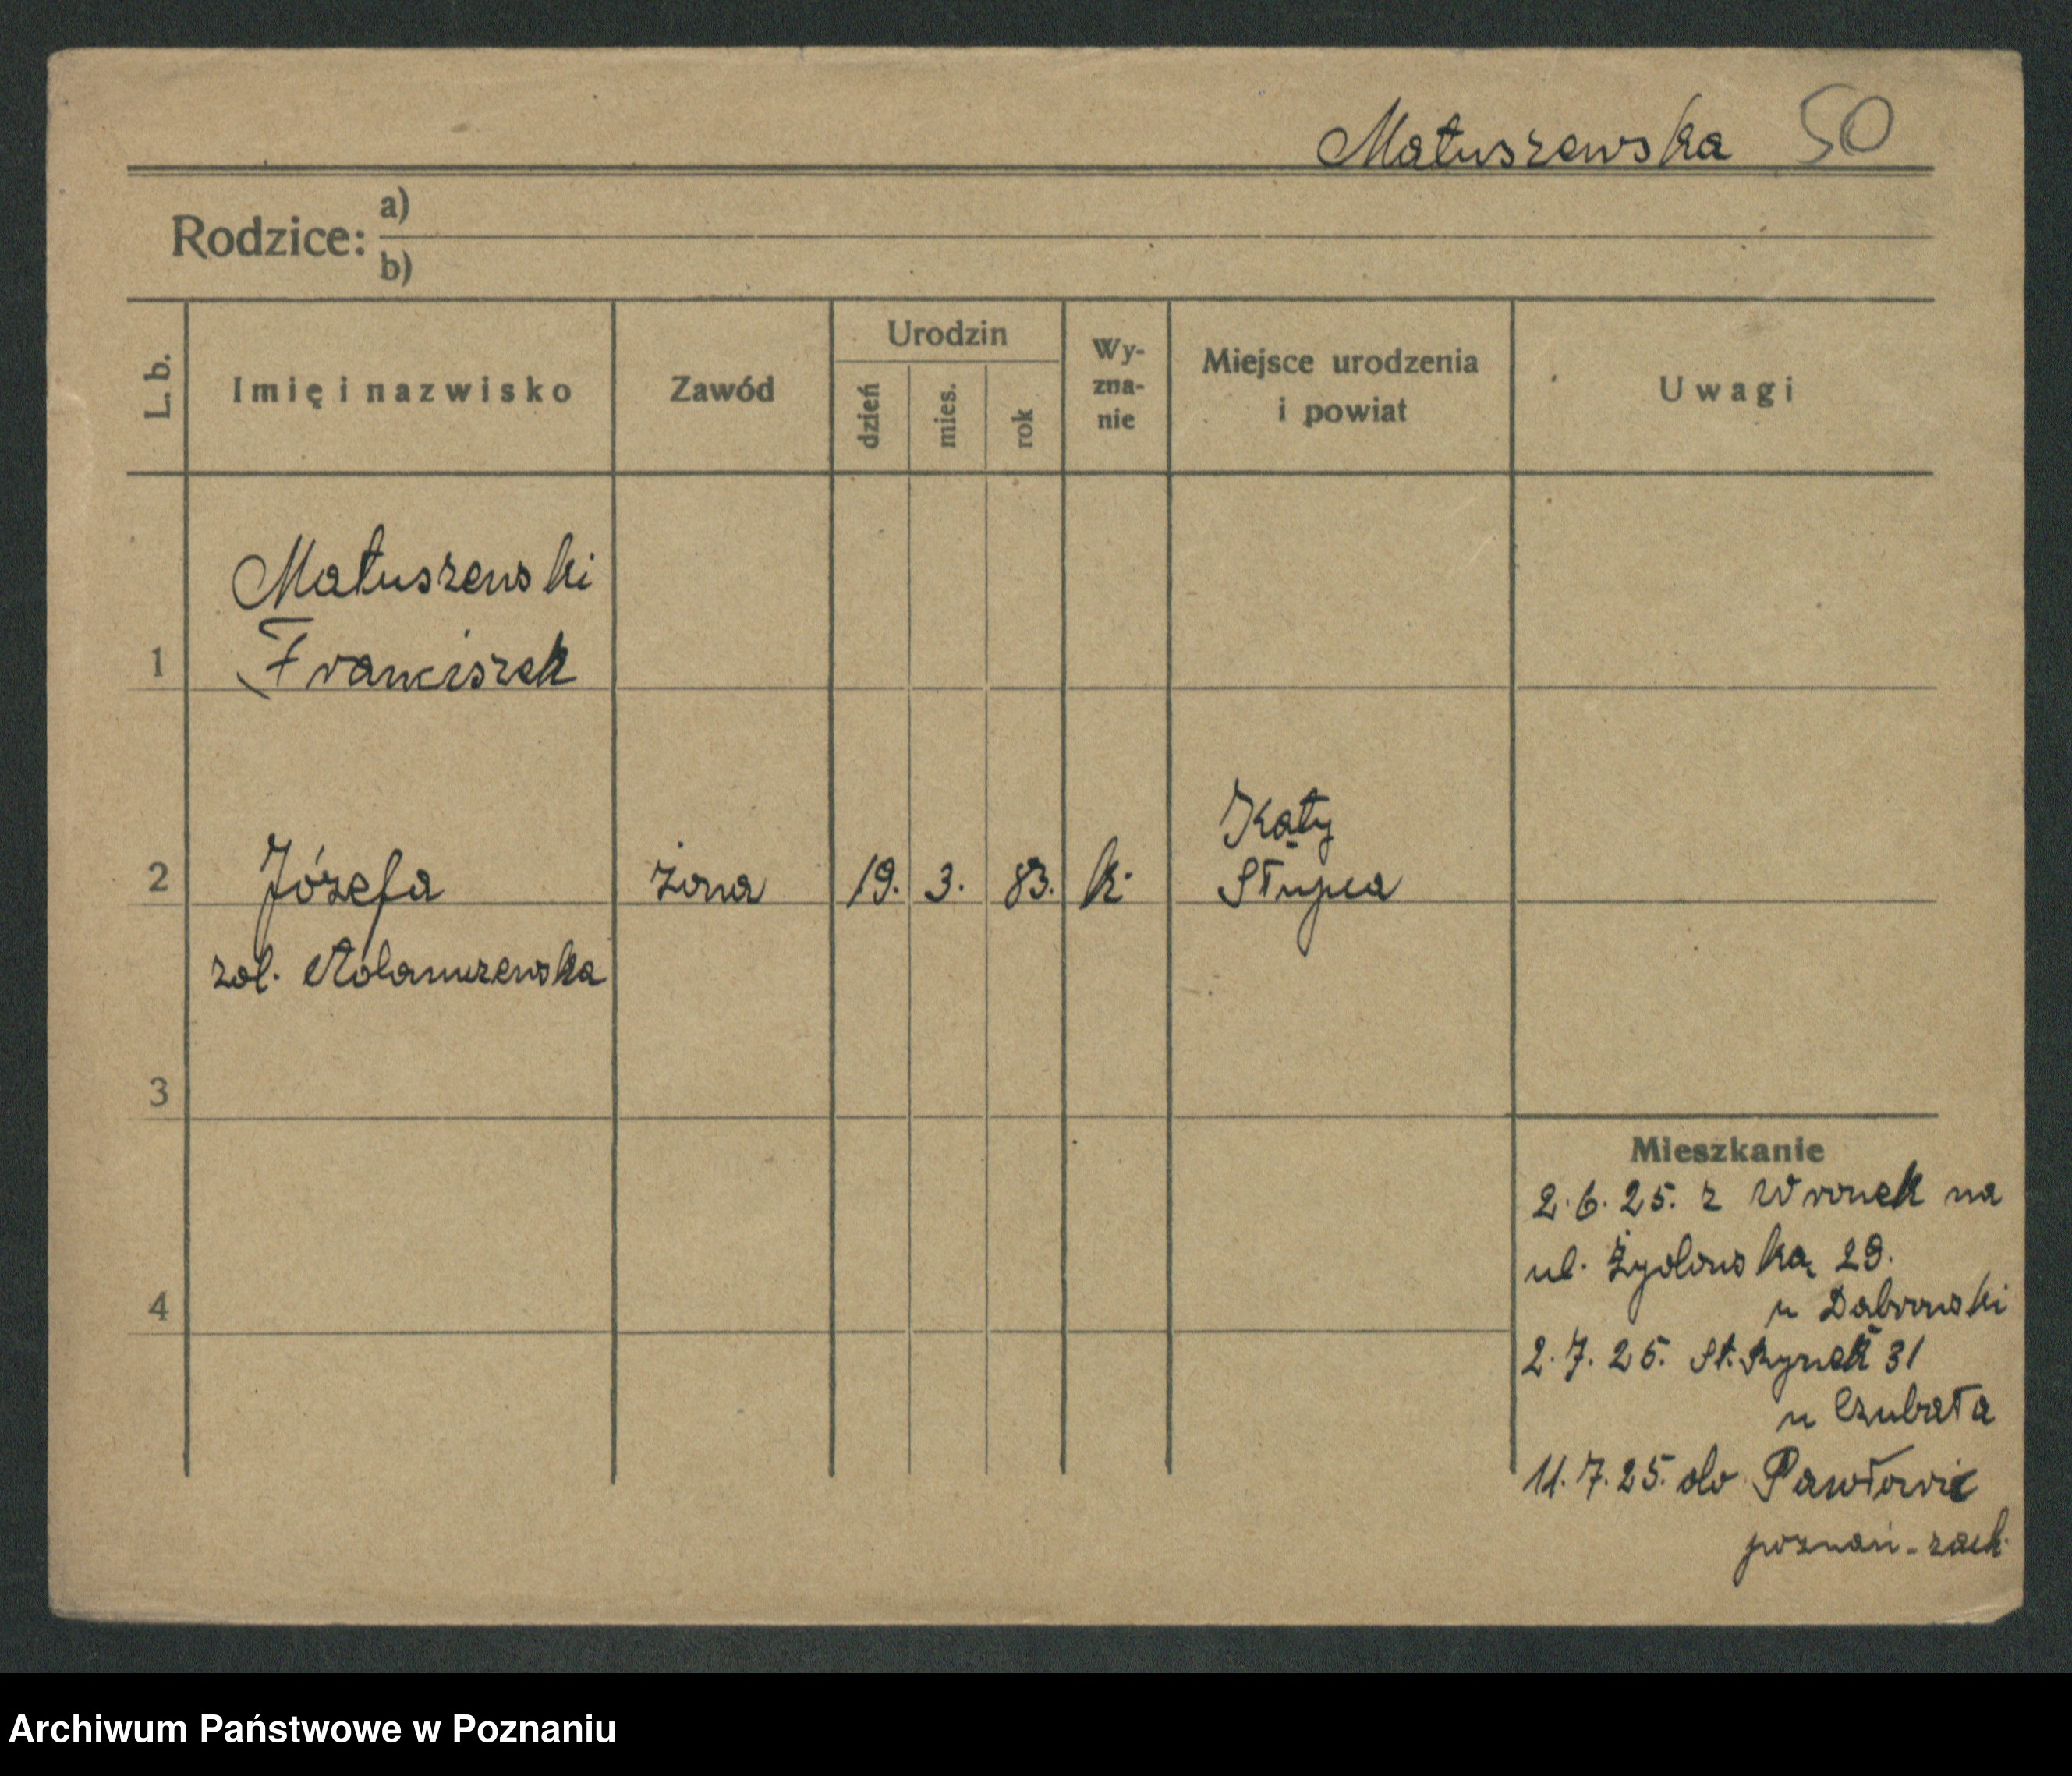 Matuszewska 50
Rodzice: a)
b)
L. b.
Imię i nazwisko
Zawód
Urodzin
dzień
mies.
rok
Wy-
zna-
nie
Miejsce urodzenia
i powiat
Uwagi
Matuszewski
1 Franciszek
Kąty
2 Józefa żona 19. 3. 83. k. Słupca
zal. Adamczewska
3
4
Mieszkanie
2.6.25. z Wronek na
ul. Żydowską 29.
u Dąbrowski
2.7.25. St. Rynek 31
u Czubała
11.7.25. do Pawłowic
poznań-zach.
Archiwum Państwowe w Poznaniu